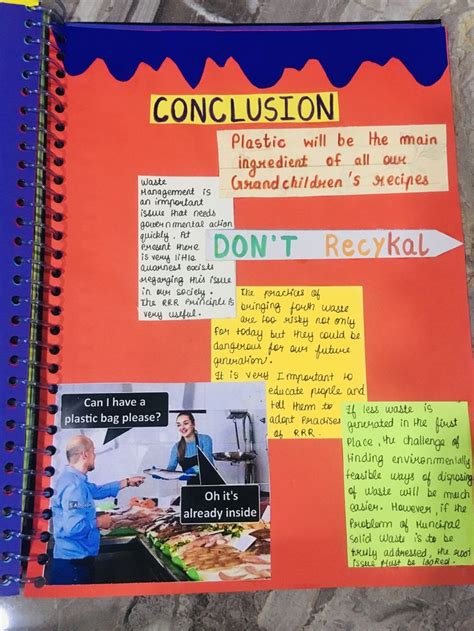 CONCLUSION
Plastic will be the main
ingredient of all our
Grandchildren's recipes
Waste
Management is
an important
issue that needs
governmental action
quickly. At
present there
is very little
awarness exists
regarging this issue
in our society.
The RRR Principle is
very useful.
DON'T Recykal
The practices of
bringing forth waste
are too risky not only
for today but they could be
dangerous for our future
generation.
It is very Important to
educate people and
tell them to
adopt Practises
of RRR.
Can I have a
plastic bag please?
Oh it's
already inside
If less waste is
generated in the first
Place, the challenge of
finding environmentally
feasible ways of disposing
of waste will be much
easier. However, if the
Problem of Municipal
Solid Waste is to be
truly addressed, the root
issue must be looked.